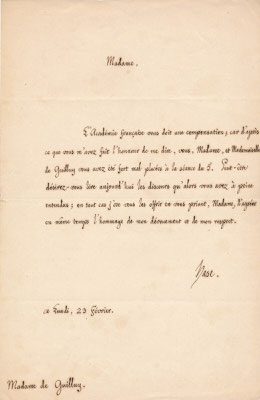 Madame,
L'Académie française vous doit une compensation; car d'après
ce que vous m'avez fait l'honneur de me dire, vous, Madame, et Mademoiselle
de Guilluy vous avez été fort mal placées à la séance du 5. Peut-être
désirez-vous lire aujourd'hui les discours qu'alors vous avez à peine
entendus; en tout cas j'ose vous les offrir en vous priant, Madame, d'agréer
en même temps l'hommage de mon dévouement et de mon respect.
ce Lundi, 23 Février.
Madame de Guilluy.